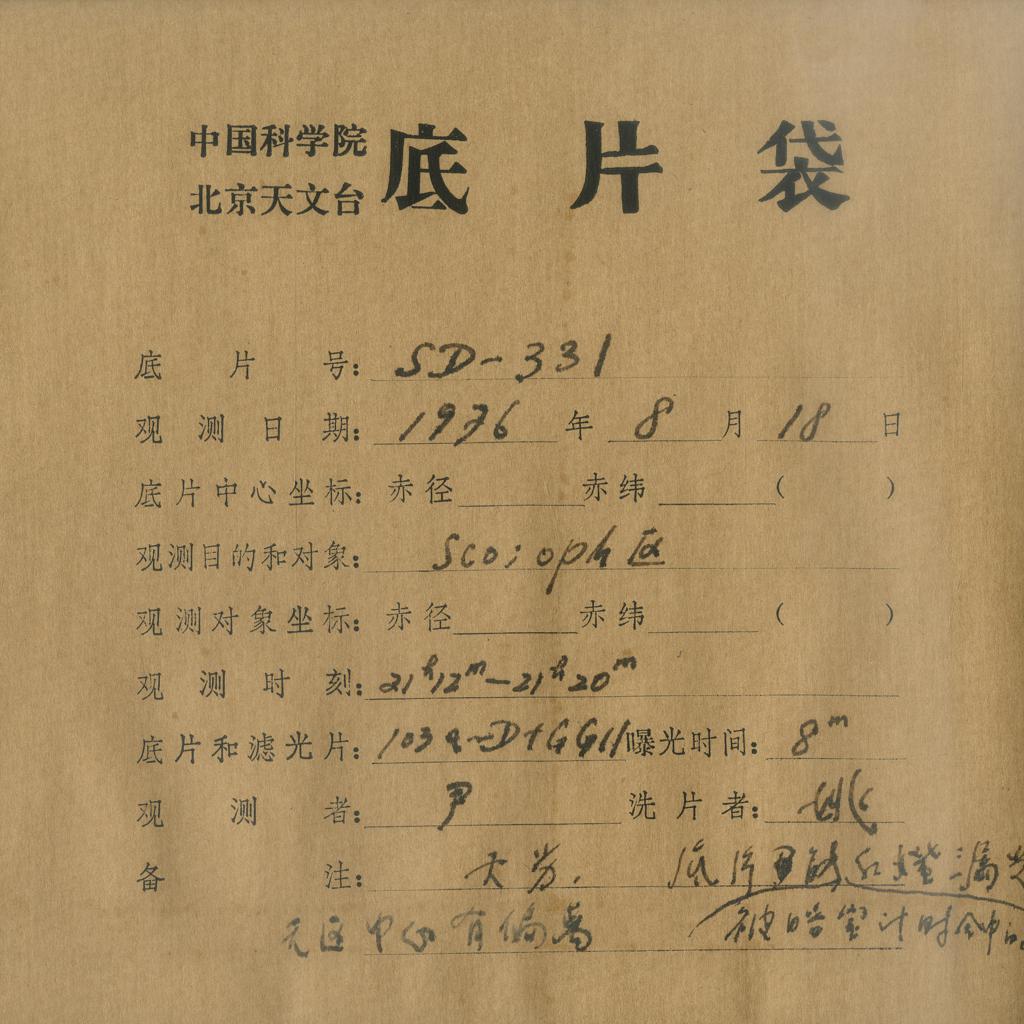 中国科学院
北京天文台
底片袋
底片号：SD-331
观测日期：1976年8月18日
底片中心坐标：赤径 赤纬 （ ）
观测目的和对象：Sco; oph 区
观测对象坐标：赤径 赤纬 （ ）
观测时刻：21h12m-21h20m
底片和滤光片：103a-D+GG11 曝光时间：8m
观测者：尹 洗片者：姚
备注：底片 和 漏光
天区中心有偏离 被暗室计时钟的